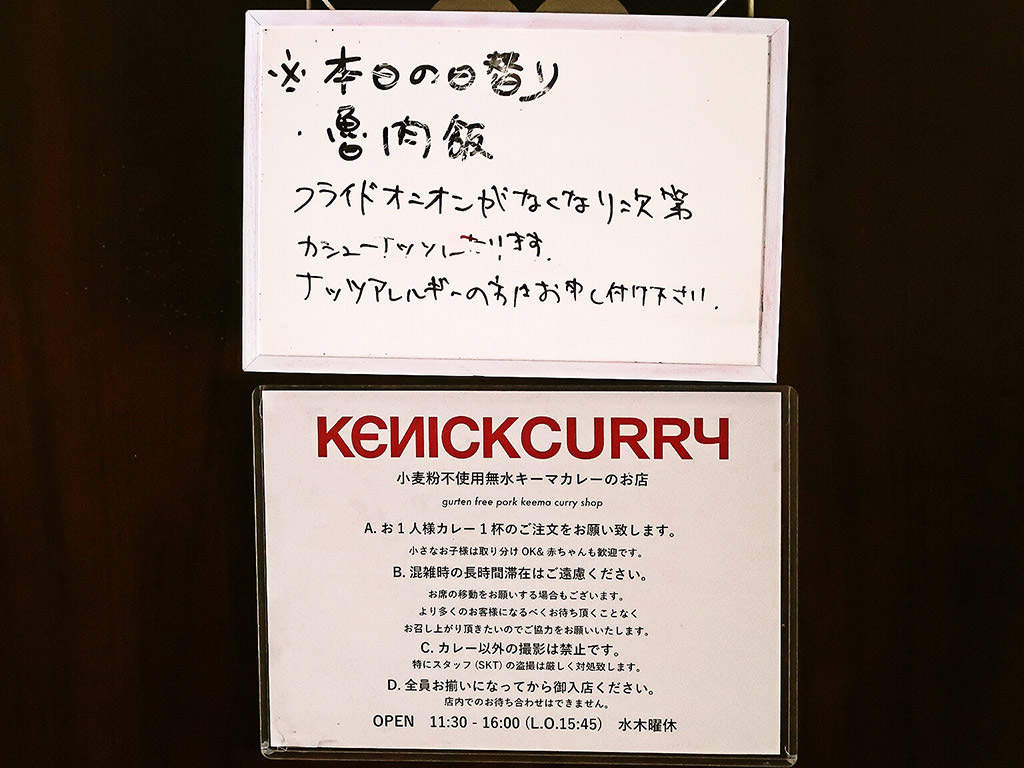 ※本日の日替り
・魯肉飯
フライドオニオンがなくなり次第
カシューナッツになります。
ナッツアレルギーの方はお申し付け下さい。
KENICKCURRY
小麦粉不使用無水キーマカレーのお店
gurten free pork keema curry shop
A. お1人様カレー1杯のご注文をお願い致します。
小さなお子様は取り分けOK& 赤ちゃんも歓迎です。
B. 混雑時の長時間滞在はご遠慮ください。
お席の移動をお願いする場合もございます。
より多くのお客様になるべくお待ち頂くことなく
お召し上がり頂きたいのでご協力をお願いいたします。
C. カレー以外の撮影は禁止です。
特にスタッフ（SKT）の盗撮は厳しく対処致します。
D. 全員お揃いになってから御入店ください。
店内でのお待ち合わせはできません。
OPEN 11:30 - 16:00（L.O.15:45） 水木曜休